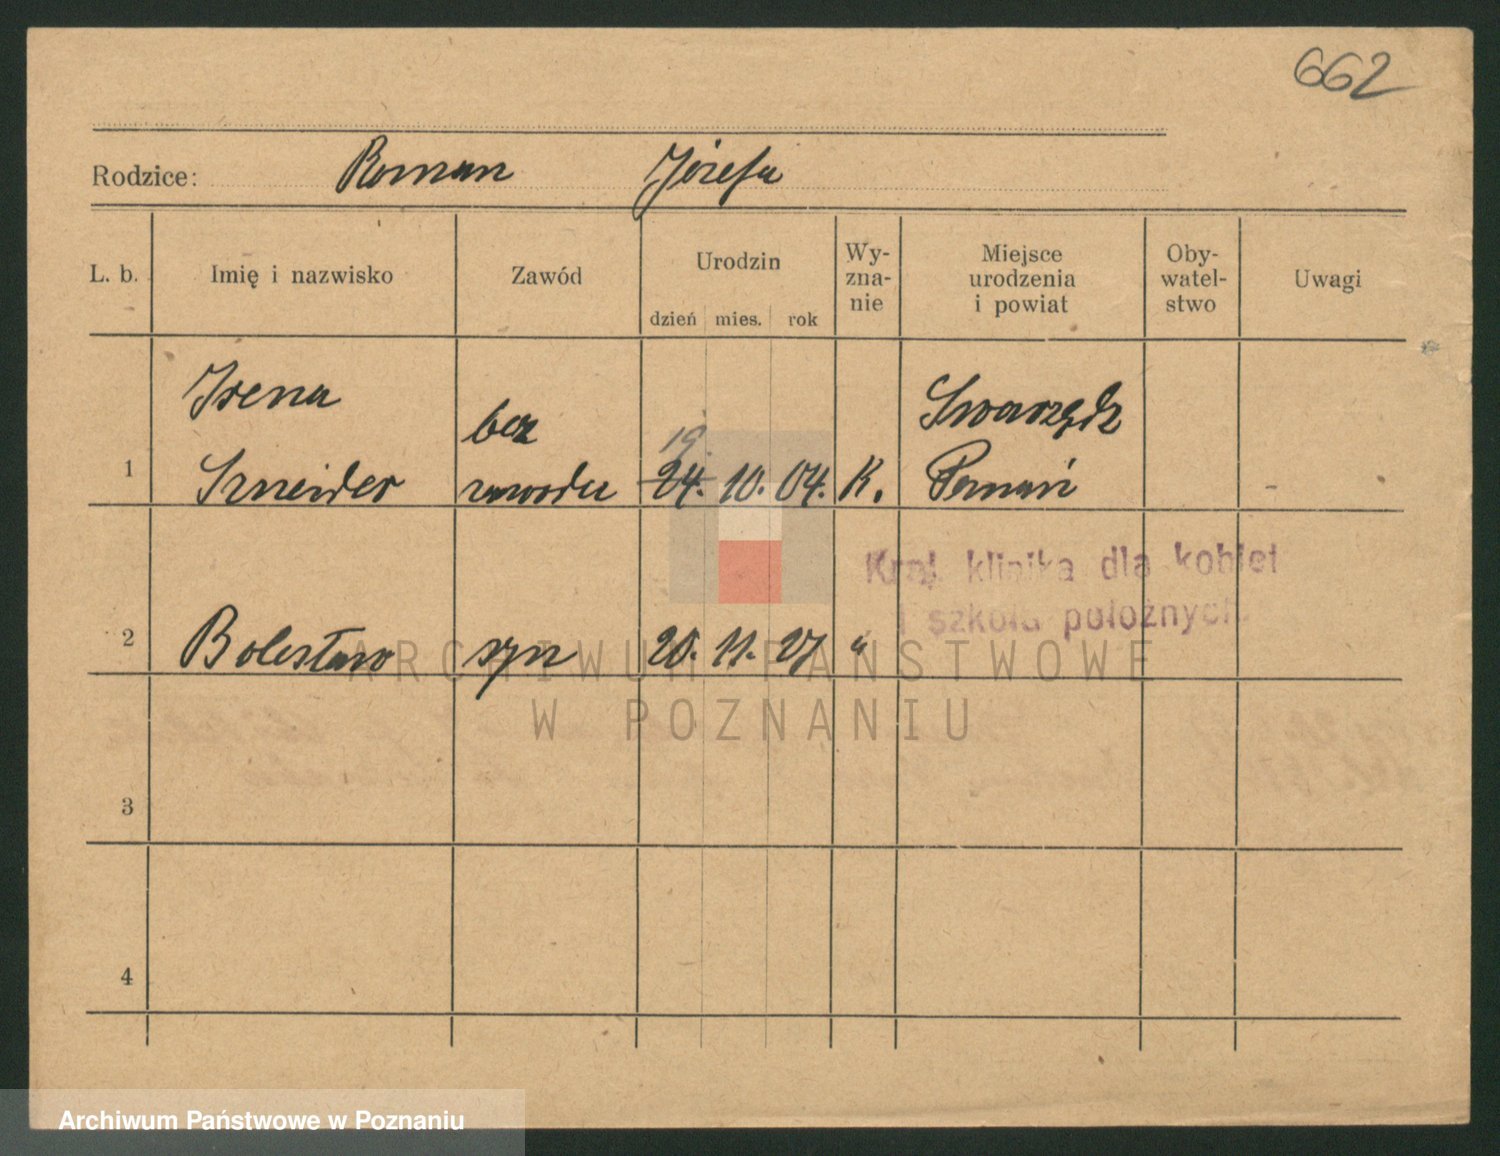 662
Rodzice: Roman Józefa
L. b. Imię i nazwisko Zawód Urodzin dzień mies. rok Wy- zna- nie Miejsce urodzenia i powiat Oby- watel- stwo Uwagi
Irena bez 19. Swarzędz
1 Szneider zawodu 24. 10. 04. K. Poznań
Kraj. klinika dla kobiet
i szkoła położnych.
2 Bolesław syn 20. 11. 27 "
ARCHIWUM PAŃSTWOWE
W POZNANIU
3
4
Archiwum Państwowe w Poznaniu